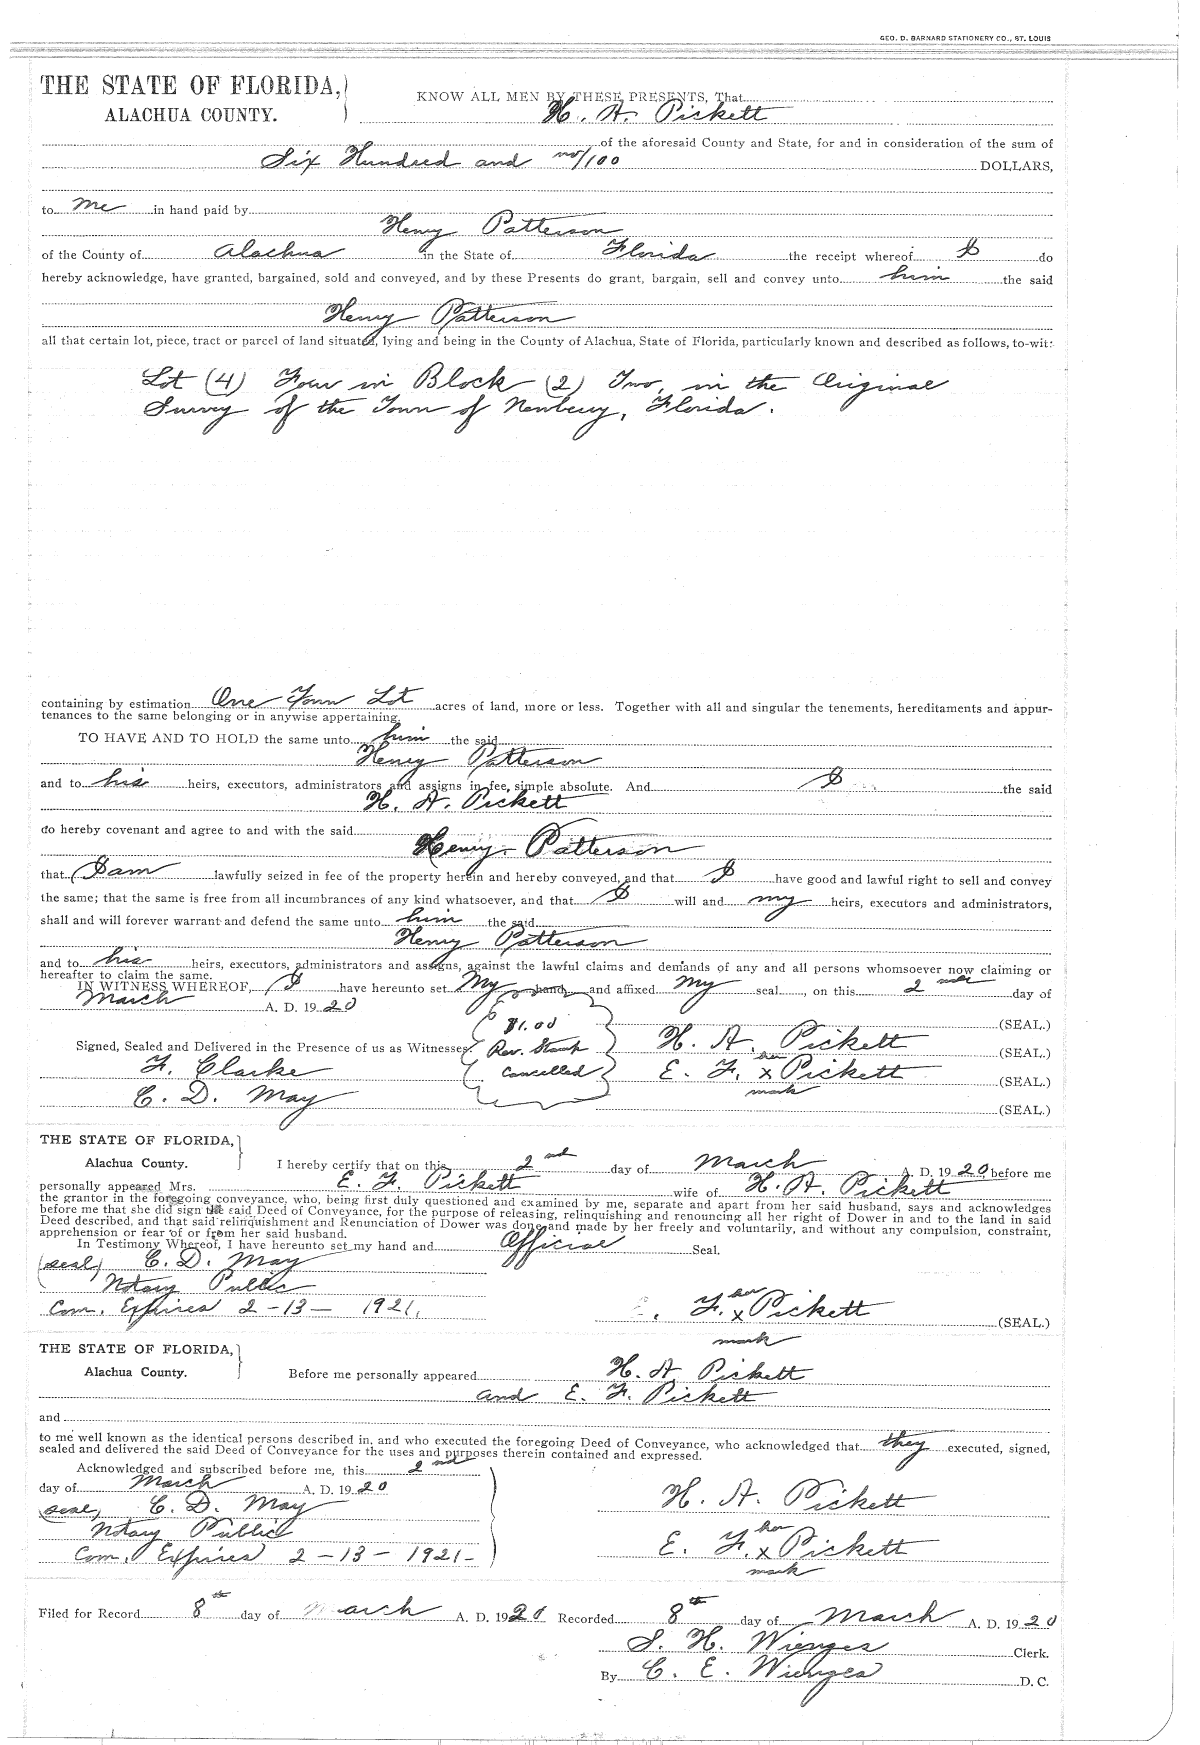 GEO. D. BARNARD STATIONERY CO., ST. LOUIS
THE STATE OF FLORIDA,
ALACHUA COUNTY.
KNOW ALL MEN BY THESE PRESENTS, That
H. A. Pickett
of the aforesaid County and State, for and in consideration of the sum of
Six Hundred and no/100 DOLLARS,
to me in hand paid by
Henry Patterson
of the County of Alachua in the State of Florida the receipt whereof I do
hereby acknowledge, have granted, bargained, sold and conveyed, and by these Presents do grant, bargain, sell and convey unto him the said
Henry Patterson
all that certain lot, piece, tract or parcel of land situated, lying and being in the County of Alachua, State of Florida, particularly known and described as follows, to-wit:
Lot (4) Four in Block (2) Two, in the Original
Survey of the Town of Newberry, Florida.
containing by estimation One Town Lot acres of land, more or less. Together with all and singular the tenements, hereditaments and appur-
tenances to the same belonging or in anywise appertaining.
TO HAVE AND TO HOLD the same unto him the said
Henry Patterson
and to his heirs, executors, administrators and assigns in fee, simple absolute. And I the said
H. A. Pickett
do hereby covenant and agree to and with the said
Henry Patterson
that I am lawfully seized in fee of the property herein and hereby conveyed, and that I have good and lawful right to sell and convey
the same; that the same is free from all incumbrances of any kind whatsoever, and that I will and my heirs, executors and administrators,
shall and will forever warrant and defend the same unto him the said
Henry Patterson
and to his heirs, executors, administrators and assigns, against the lawful claims and demands of any and all persons whomsoever now claiming or
hereafter to claim the same.
IN WITNESS WHEREOF, I have hereunto set My hand and affixed My seal, on this 2nd day of
March A. D. 1920
(SEAL.)
$1.00
Rev. Stamp
Cancelled
H. A. Pickett (SEAL.)
Signed, Sealed and Delivered in the Presence of us as Witnesses:
F. Clarke
E. F. her x mark Pickett (SEAL.)
C. D. May
(SEAL.)
THE STATE OF FLORIDA,
Alachua County.
I hereby certify that on this 2nd day of March A. D. 1920, before me
personally appeared Mrs. E. F. Pickett wife of H. A. Pickett
the grantor in the foregoing conveyance, who, being first duly questioned and examined by me, separate and apart from her said husband, says and acknowledges
before me that she did sign the said Deed of Conveyance, for the purpose of releasing, relinquishing and renouncing all her right of Dower in and to the land in said
Deed described, and that said relinquishment and Renunciation of Dower was done and made by her freely and voluntarily, and without any compulsion, constraint,
apprehension or fear of or from her said husband.
In Testimony Whereof, I have hereunto set my hand and Official Seal.
(seal) C. D. May
Notary Public
Com. Expires 2-13-1921.
F. her x mark Pickett (SEAL.)
THE STATE OF FLORIDA,
Alachua County.
Before me personally appeared H. A. Pickett
and E. F. Pickett
and
to me well known as the identical persons described in, and who executed the foregoing Deed of Conveyance, who acknowledged that they executed, signed,
sealed and delivered the said Deed of Conveyance for the uses and purposes therein contained and expressed.
Acknowledged and subscribed before me, this 2nd
day of March A. D. 1920
(seal) C. D. May
Notary Public
Com. Expires 2-13-1921-
H. A. Pickett
E. F. her x mark Pickett
Filed for Record 8th day of March A. D. 1920 Recorded 8th day of March A. D. 1920
S. H. Wienges Clerk.
By C. E. Wienges D. C.